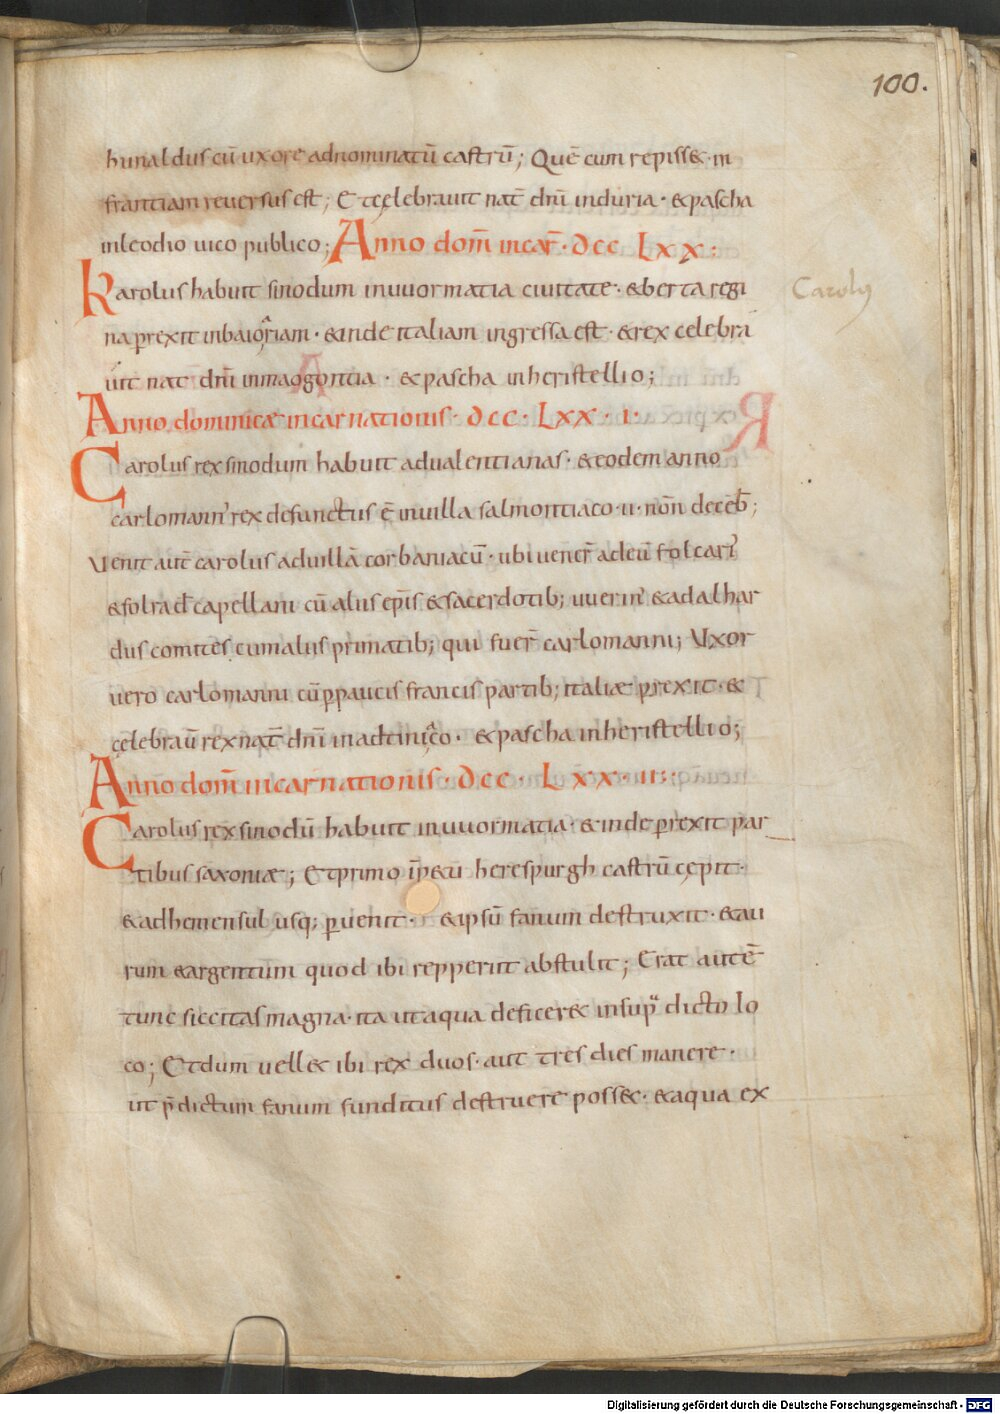 100.
hunaldus cū uxore ad nominatū castrū; Quē cum repiss&· in
frantiam reuersus est; Et celebrauit nat̄ dn̄i in duria· & pascha
in leodio uico publico; Anno dom̄ incar̄· dcc Lxx;
Karolus habuit sinodum in uuormatia ciuitate· & berta regi
na perrexit in baioariam· & inde italiam ingressa est· & rex celebra
uit nat̄ dn̄i in maogontia· & pascha in heristellio;
Carolus
Anno dominicæ incarnationis· dcc· Lxx· i·
Carolus rex sinodum habuit ad ualentianas· & eodem anno
carlomann' rex defunctus ē in uilla salmontiaco· ii· non̄ decēb̄;
Venit aut̄ carolus ad uillā corbaniacū· ubi uener̄ ad eū folcari'
& folrad̄ capellani cū aliis ep̄is & sacerdotib; uuerin' & adalhar
dus comites cum aliis primatib; qui fuer̄ carlomanni; Uxor
uero carlomanni cū p paucis francis partib; italiæ prexit· &
celebrau̅ rex nat̄ dn̄i in adtiniaco· & pascha in heristellio;
Anno dom̄ incarnationis· dcc· Lxx· ii;
Carolus rex sinodū habuit in uuormatia· & inde prexit par
tibus saxoniæ; Et primo ip̄& u heresburgh castrū cepit·
& ad hermensul usq; puenit· & ipsū fanum destruxit· & au
rum & argentum quod ibi repperiit abstulit; Erat autē
tunc siccitas magna· ita ut aqua deficer& in sup̄ dicto lo
co; Et dum uell& ibi rex duos· aut tres dies manere·
ut p̄dictum fanum funditus destruere poss&· & aqua ex
Digitalisierung gefördert durch die Deutsche Forschungsgemeinschaft - DFG